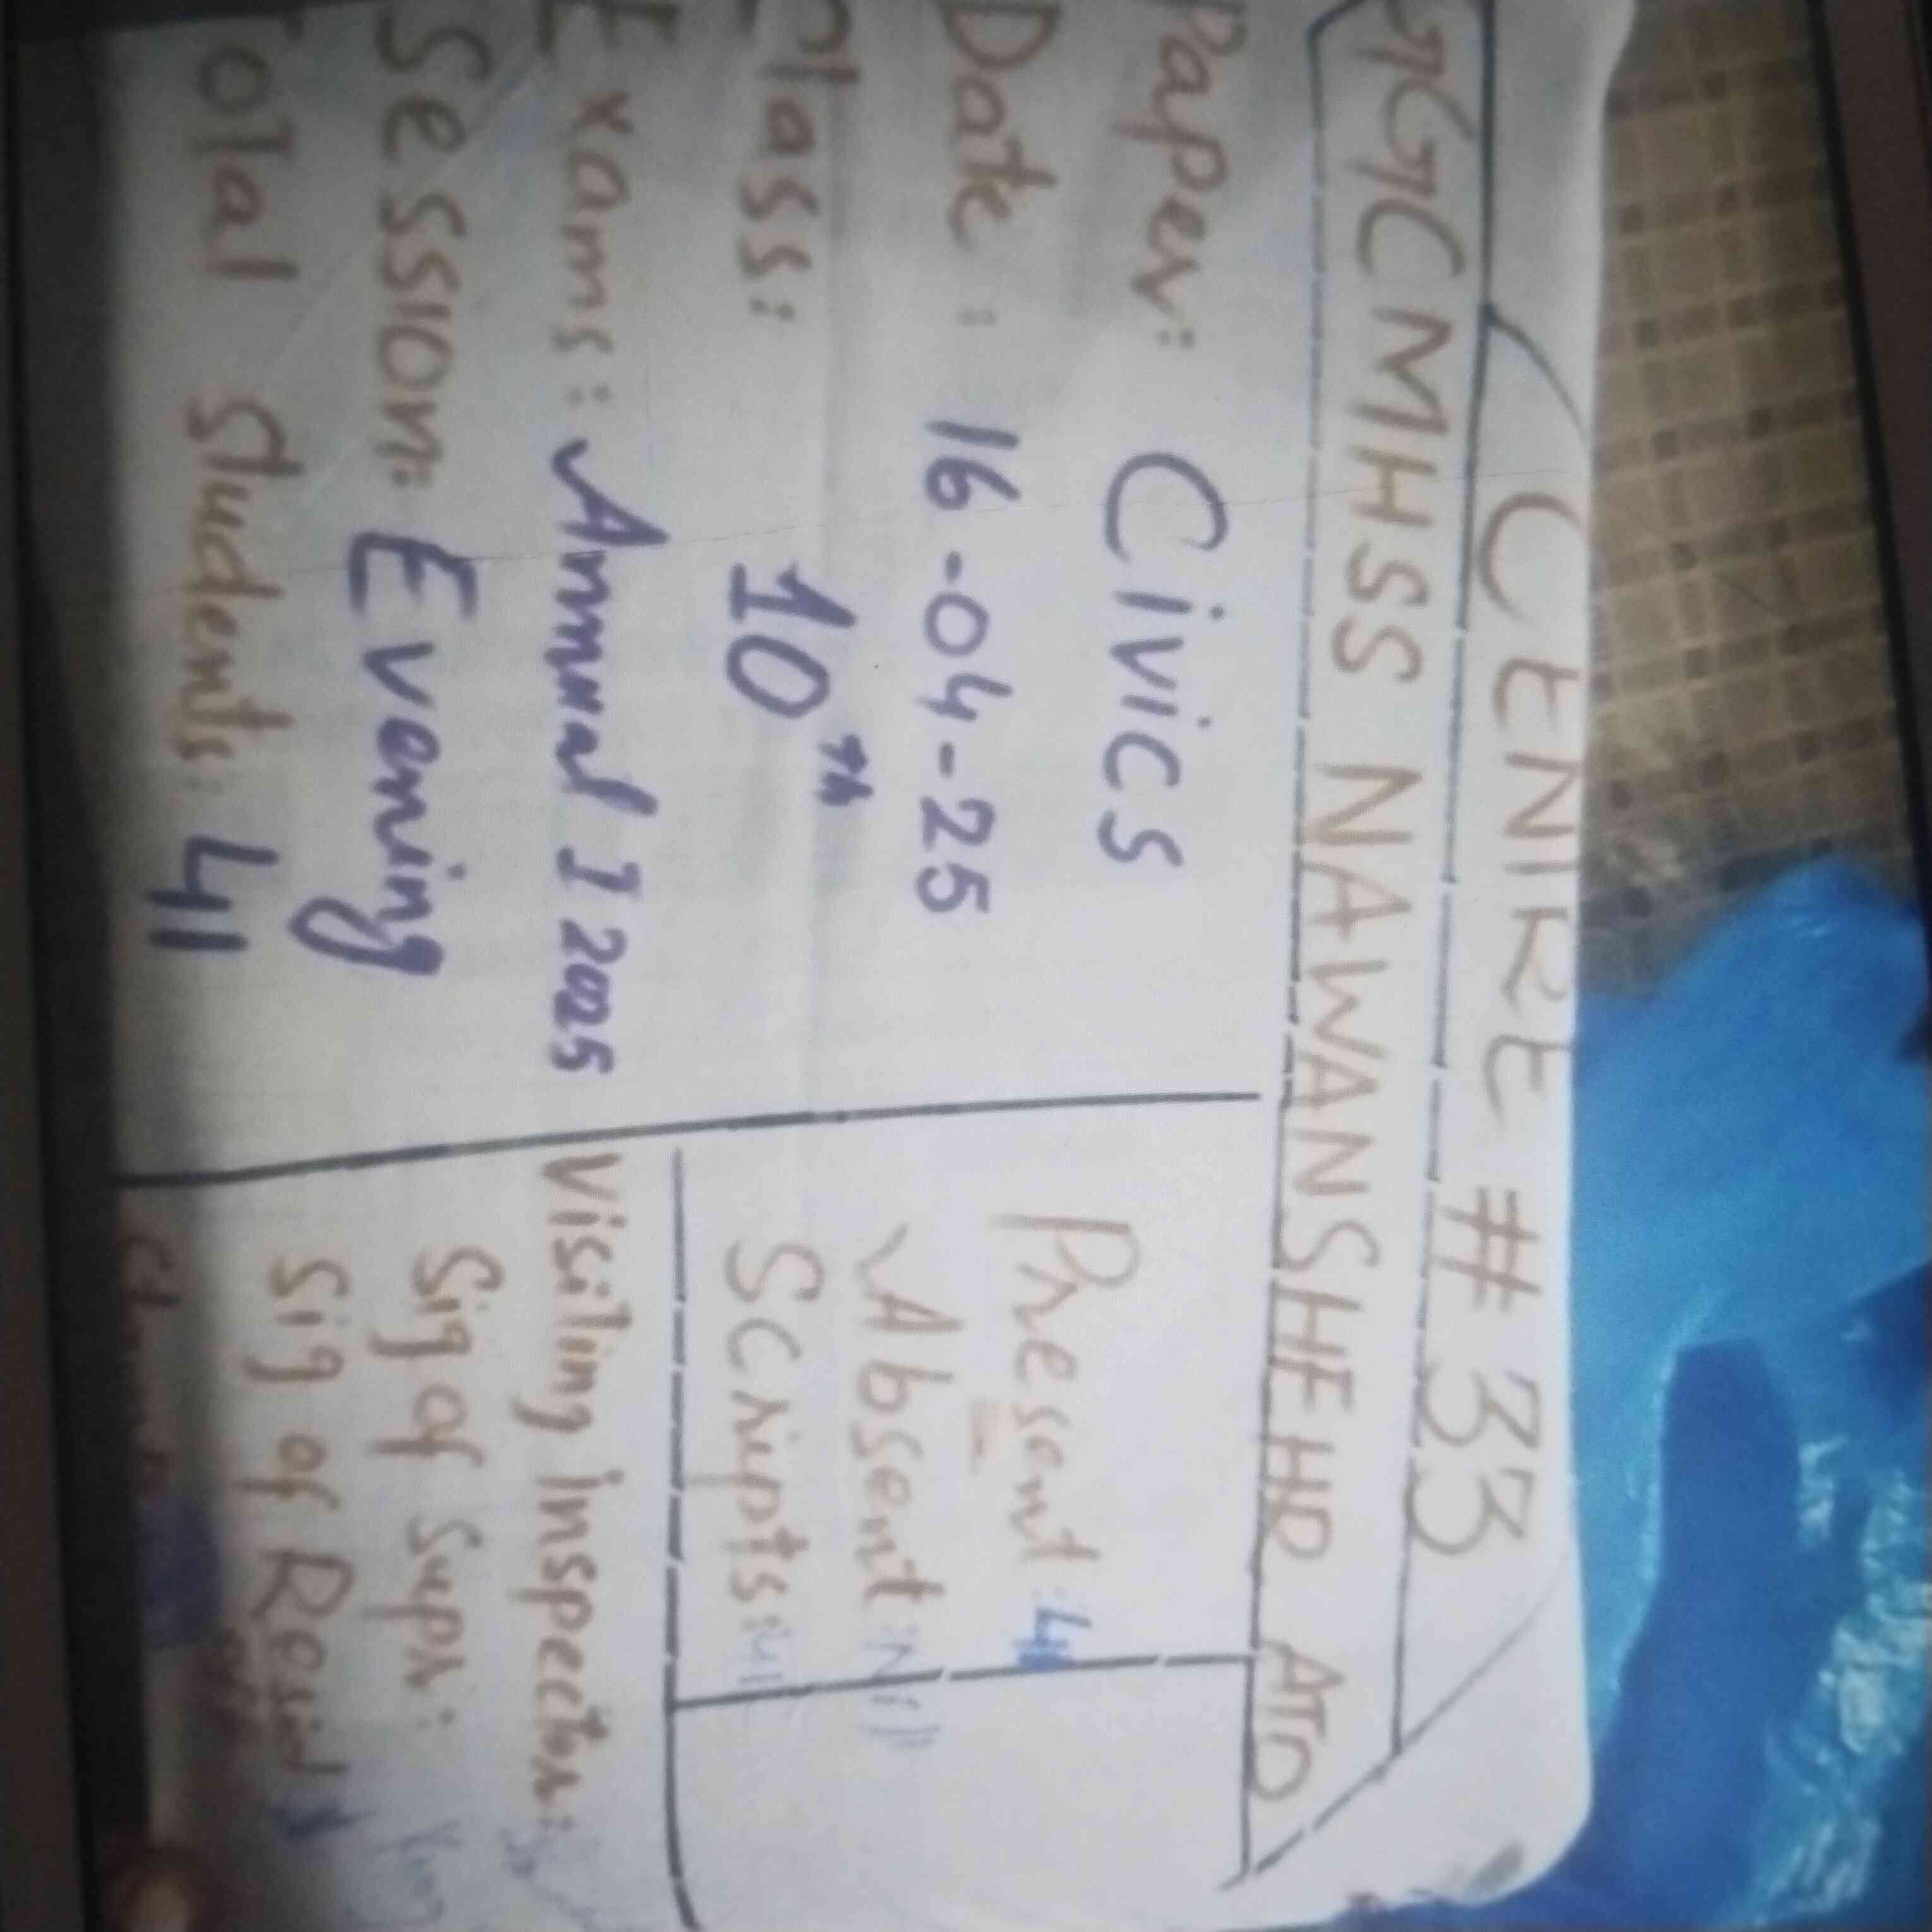 CENTRE # 33
GGCMHSS NAWANSHEHR ATD
Paper: Civics
Date: 16-04-25
Class: 10th
Exams: Annual I 2025
Session: Evening
Total Students: 41
Present: 41
Absent: Nil
Scripts: 41
Visiting Inspector:
Sig of Supr:
Sig of Resid